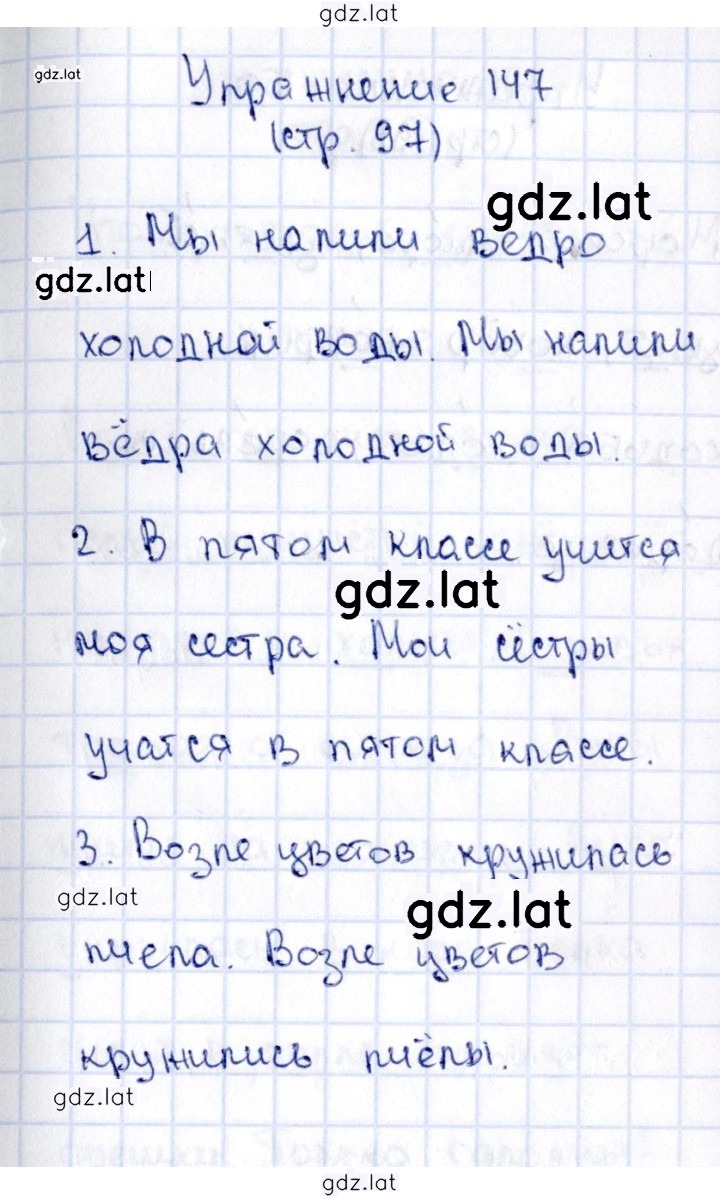 gdz.lat
gdz.lat
Упражнение 147
(стр. 97)
gdz.lat
1. Мы налили ведро
gdz.lat
холодной воды. Мы налили
вёдра холодной воды.
2. В пятом классе учится
gdz.lat
моя сестра. Мои сёстры
учатся в пятом классе.
3. Возле цветов кружилась
gdz.lat
gdz.lat
пчела. Возле цветов
кружились пчёлы.
gdz.lat
gdz.lat